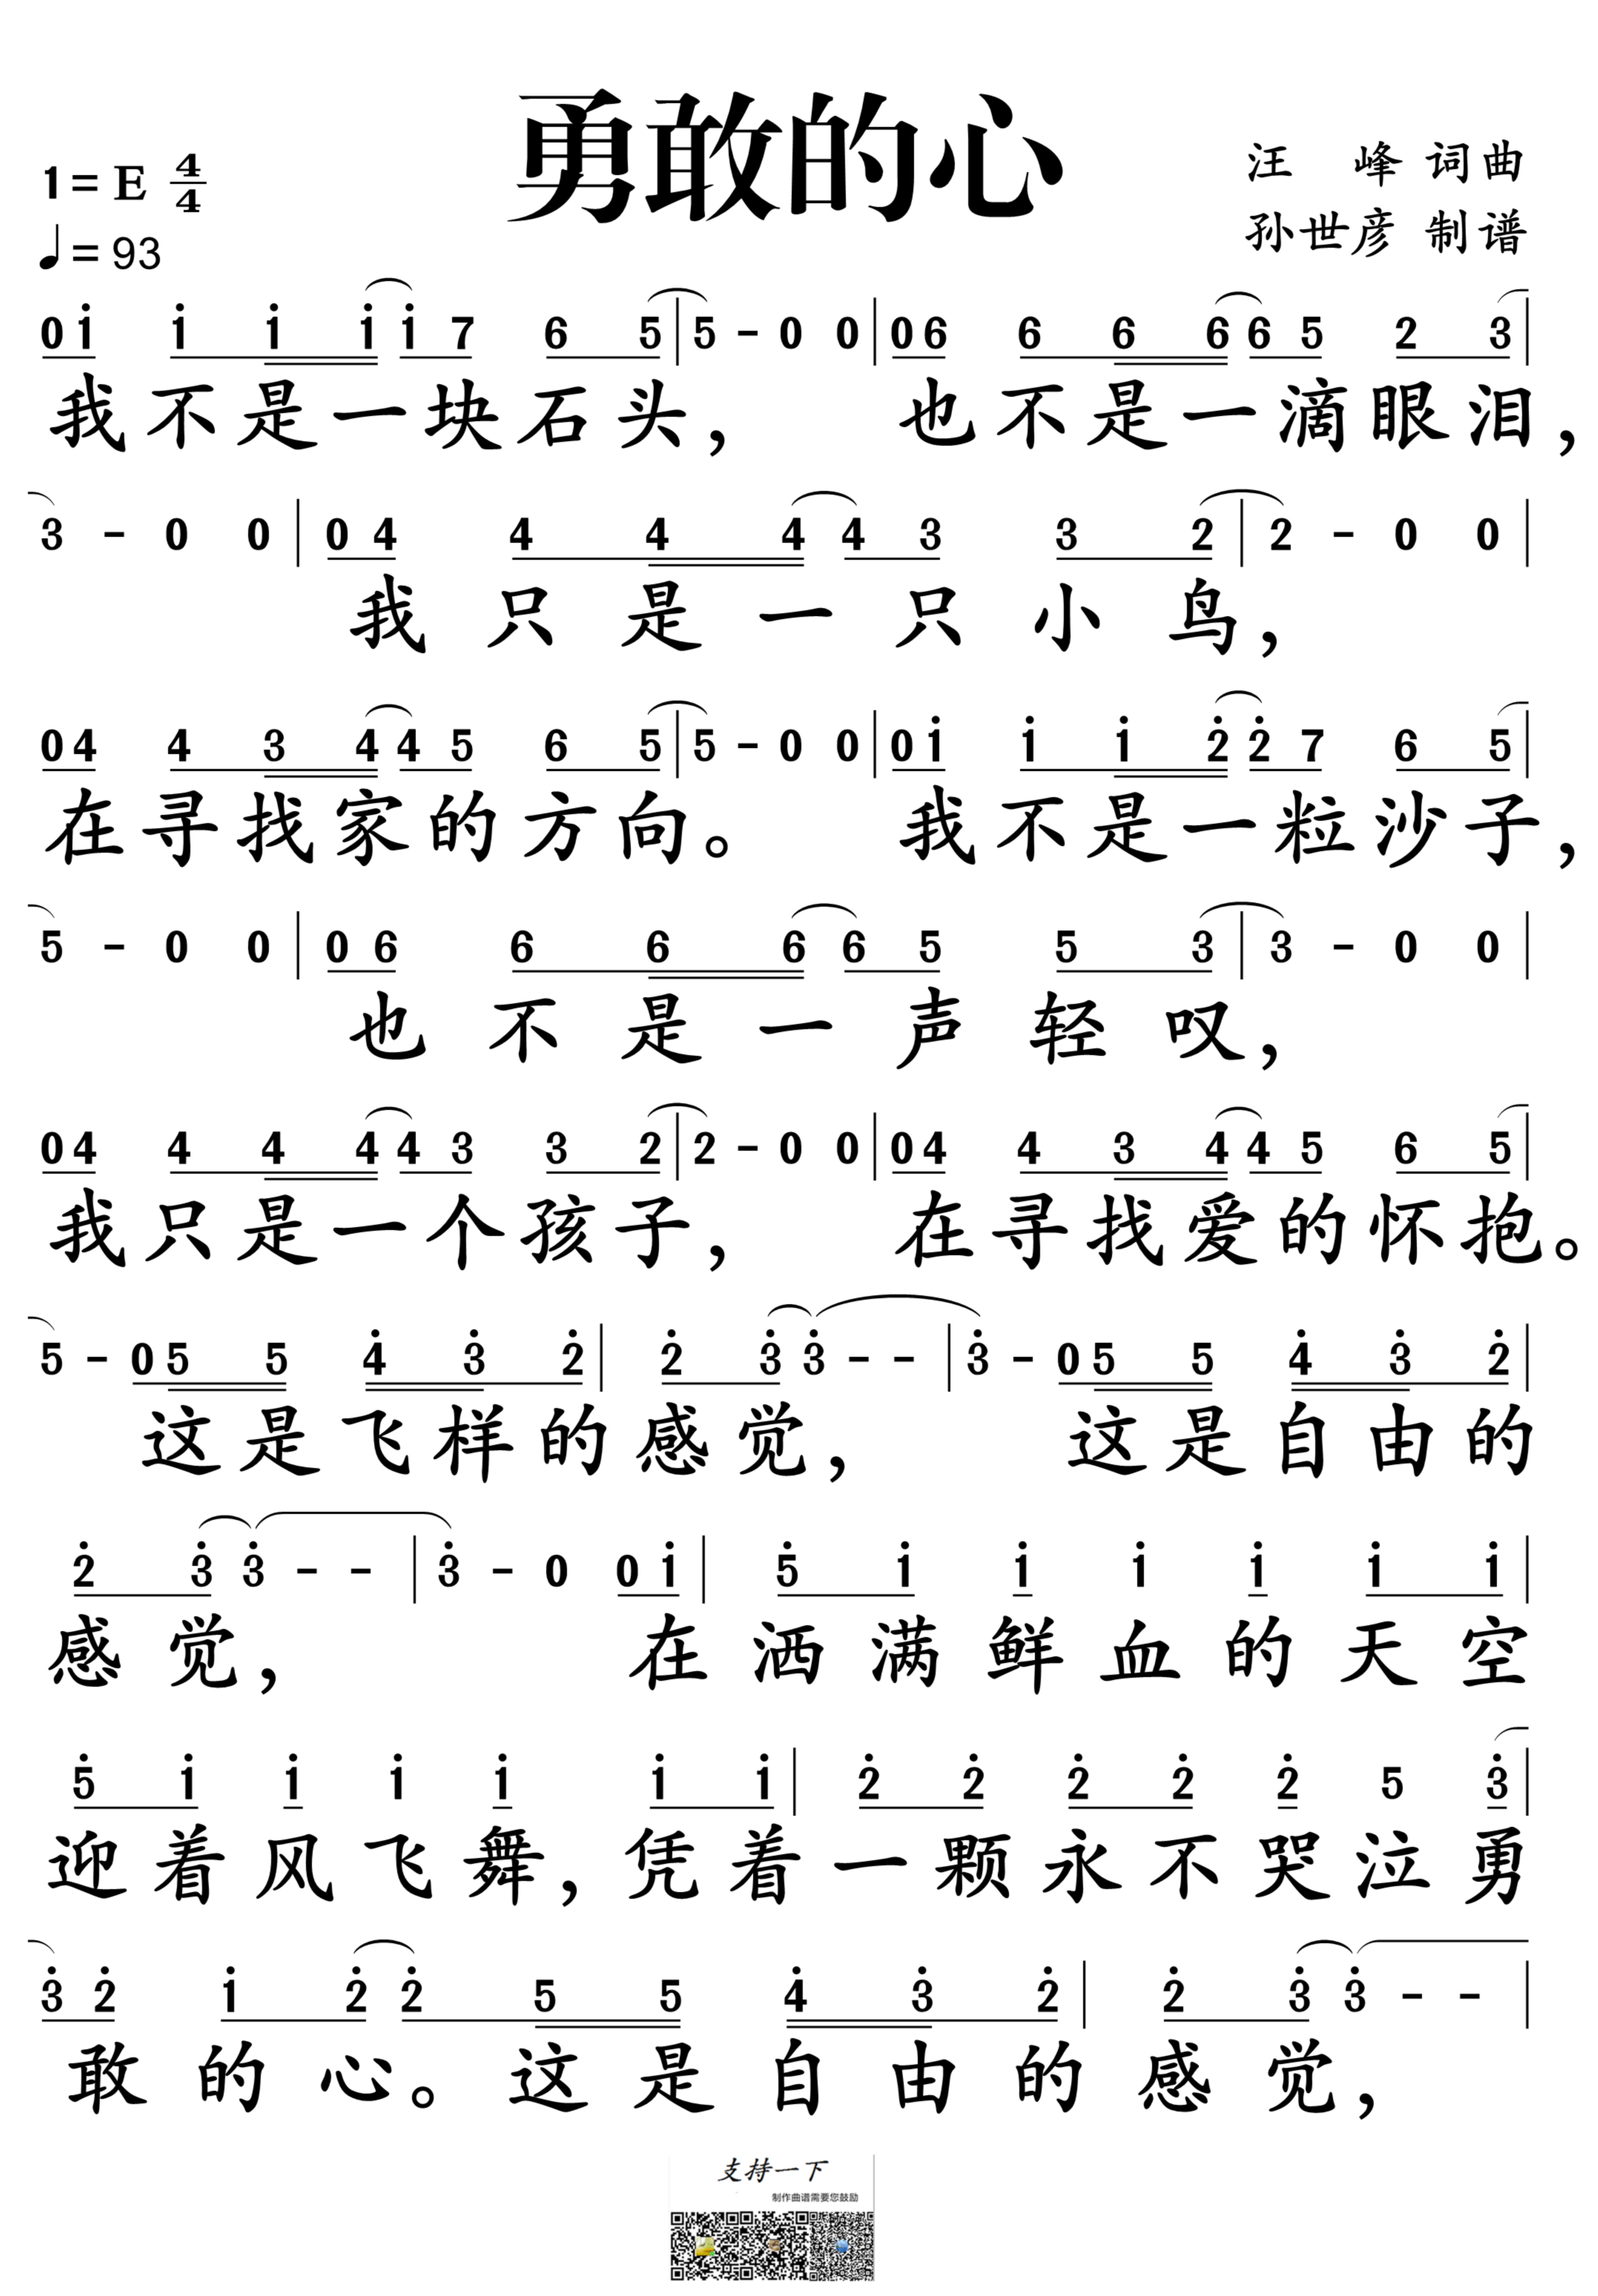 勇敢的心
1= E 4/4
汪 峰 词曲
♩= 93
孙世彦 制谱
0 i i i i i 7 6 5 | 5 - 0 0 | 0 6 6 6 6 6 5 2 3 |
我不是一块石头， 也不是一滴眼泪，
3 - 0 0 | 0 4 4 4 4 4 3 3 2 | 2 - 0 0 |
我只是一只小鸟，
0 4 4 3 4 4 5 6 5 | 5 - 0 0 | 0 i i i 2̇ 2̇ 7 6 5 |
在寻找家的方向。 我不是一粒沙子，
5 - 0 0 | 0 6 6 6 6 6 5 5 3 | 3 - 0 0 |
也不是一声轻叹，
0 4 4 4 4 4 3 3 2 | 2 - 0 0 | 0 4 4 3 4 4 5 6 5 |
我只是一个孩子， 在寻找爱的怀抱。
5 - 0 5 5 4̇ 3̇ 2̇ | 2̇ 3̇ 3̇ - - | 3̇ - 0 5 5 4̇ 3̇ 2̇ |
这是飞样的感觉， 这是自由的
2̇ 3̇ 3̇ - - | 3̇ - 0 0 i | 5̇ i i i i i i |
感觉， 在洒满鲜血的天空
5̇ i i i i i i | 2̇ 2̇ 2̇ 2̇ 2̇ 5 3̇ |
迎着风飞舞，凭着一颗永不哭泣勇
3̇ 2̇ i 2̇ 2̇ 5 5 4̇ 3̇ 2̇ | 2̇ 3̇ 3̇ - - |
敢的心。这是自由的感觉，
支持一下
制作曲谱需要您鼓励